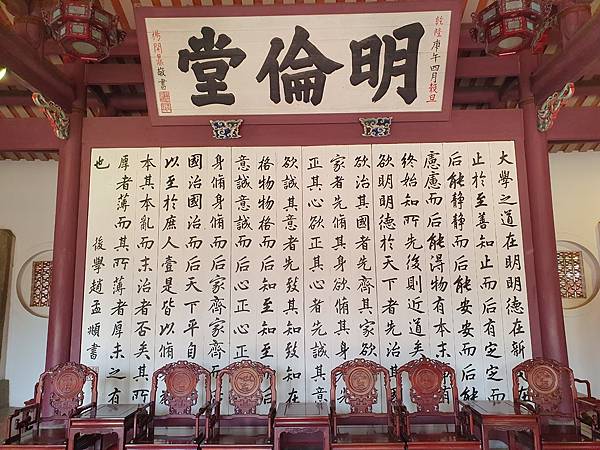 乾隆庚午四月穀旦
明倫堂
楊開鼎敬書
大學之道在明明德在新民
止於至善知止而后有定定而
后能靜靜而后能安安而后
慮慮而后能得物有本末
終始知所先後則近道矣
欲明明德於天下者先治其
欲治其國者先齊其家欲
家者先脩其身欲脩其身
正其心欲正其心者先誠
欲誠其意者先致其知致知在
格物物格而后知至知至
意誠意誠而后心正心正
身脩身脩而后家齊家齊
國治國治而后天下平自
以至於庶人壹是皆以脩
本其本亂而末治者否矣其
厚者薄而其所薄者厚未之有
也
後學趙孟頫書